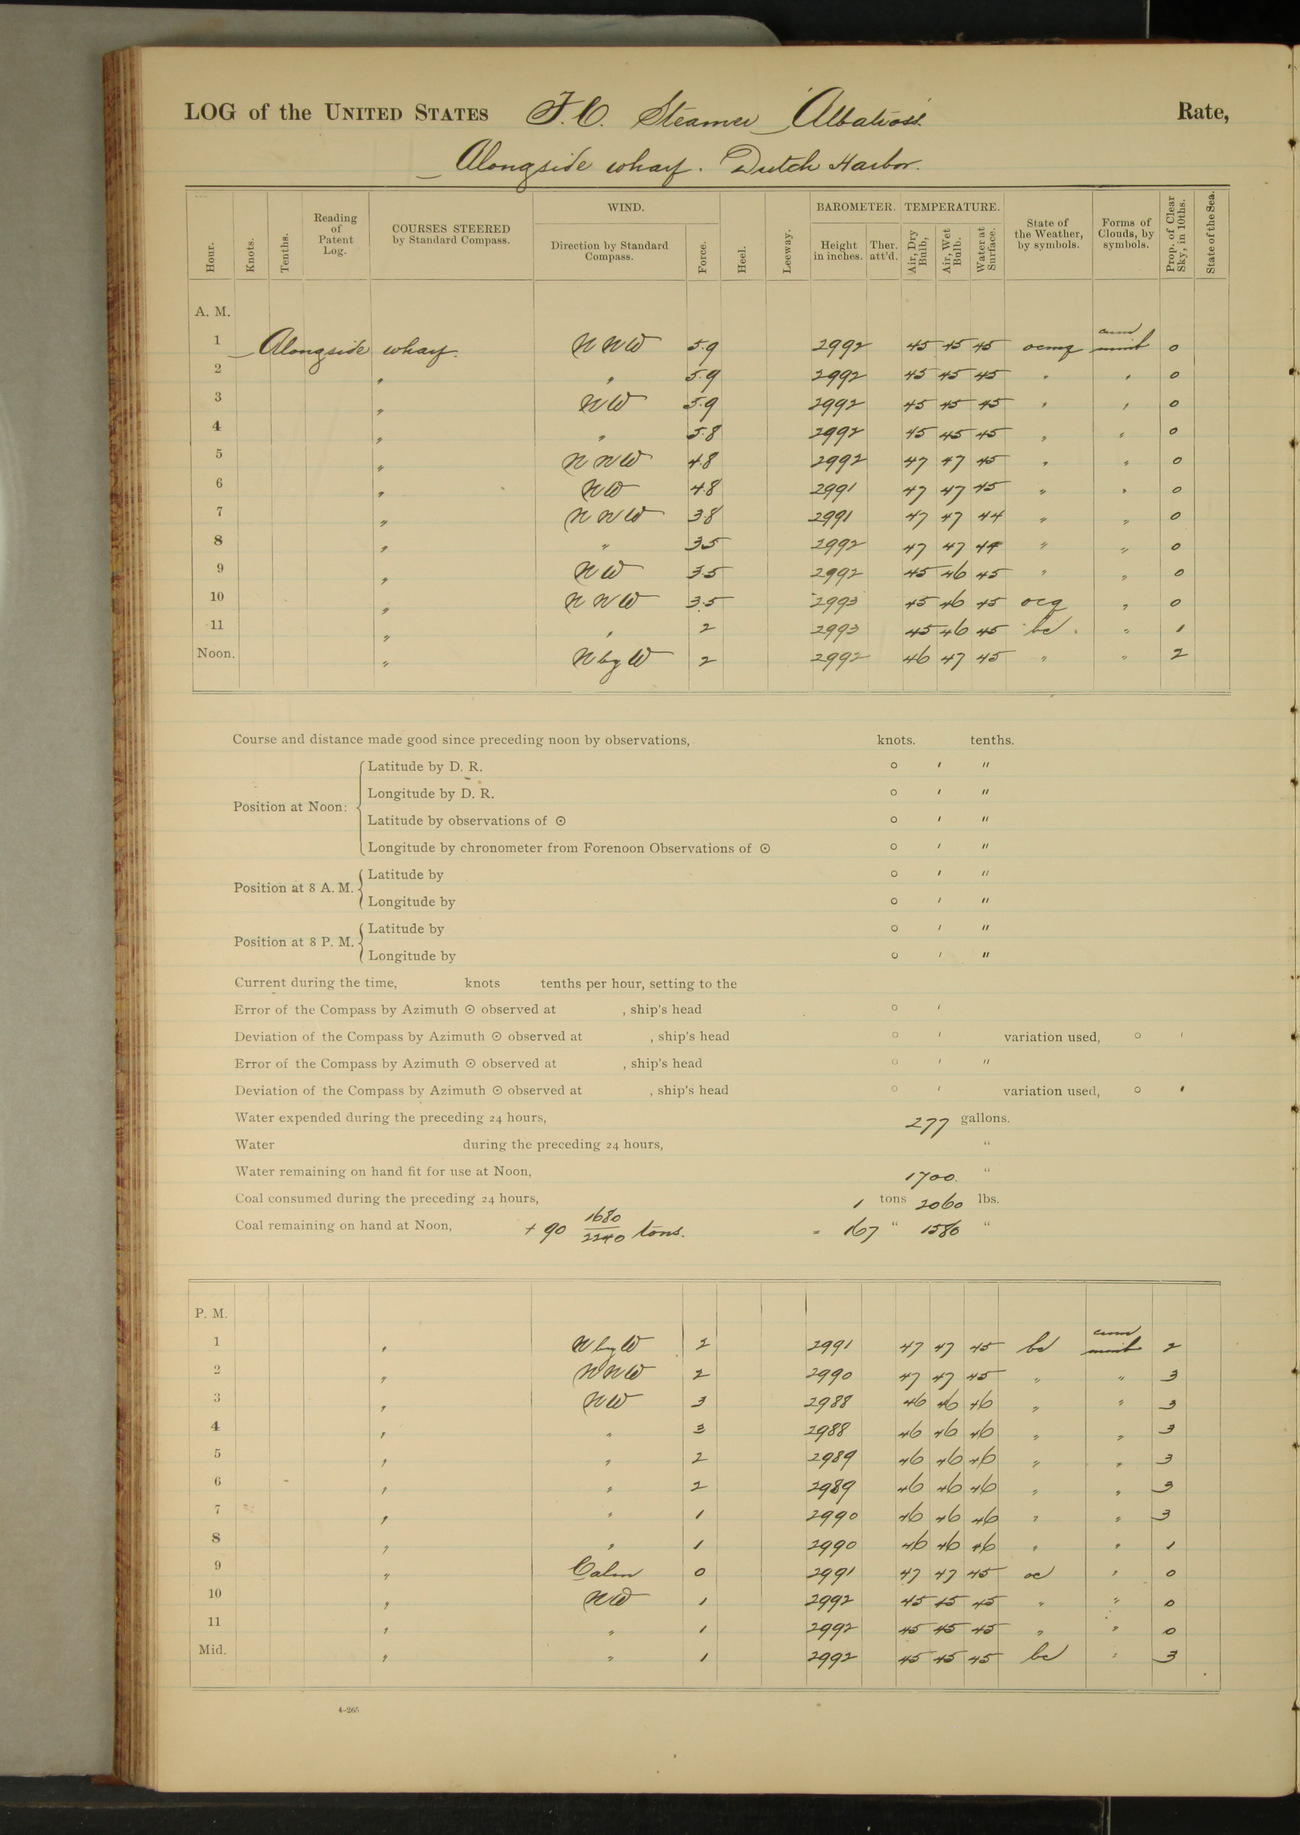 LOG of the UNITED STATES F.C. Steamer "Albatross" Rate,
Alongside wharf. Dutch Harbor.
Hour. Knots. Tenths. Reading of Patent Log. COURSES STEERED by Standard Compass. WIND. Direction by Standard Compass. Force. Heel. Leeway. BAROMETER. Height in inches. Ther. att'd. TEMPERATURE. Air, Dry Bulb, Air, Wet Bulb. Water at Surface. State of the Weather, by symbols. Forms of Clouds, by symbols. Prop. of Clear Sky, in 10ths. State of the Sea.
A. M.
1 Alongside wharf. NNW 5.9 2992 45 45 45 ocmq cum nimb 0
2 " " 5.9 2992 45 45 45 " " 0
3 " NW 5.9 2992 45 45 45 " " 0
4 " " 5.8 2992 45 45 45 " " 0
5 " NNW 4.8 2992 47 47 45 " " 0
6 " NW 4.8 2991 47 47 45 " " 0
7 " NNW 3.8 2991 47 47 44 " " 0
8 " " 3.5 2992 47 47 44 " " 0
9 " NW 3.5 2992 45 46 45 " " 0
10 " NNW 3.5 2993 45 46 45 ocq " 0
11 " " 2 2993 45 46 45 bc " 1
Noon. " N by W 2 2992 46 47 45 " " 2
Course and distance made good since preceding noon by observations, knots. tenths.
Position at Noon: Latitude by D. R. ° ′ ″
Longitude by D. R. ° ′ ″
Latitude by observations of ⊙ ° ′ ″
Longitude by chronometer from Forenoon Observations of ⊙ ° ′ ″
Position at 8 A. M. Latitude by ° ′ ″
Longitude by ° ′ ″
Position at 8 P. M. Latitude by ° ′ ″
Longitude by ° ′ ″
Current during the time, knots tenths per hour, setting to the
Error of the Compass by Azimuth ⊙ observed at , ship's head ° ′
Deviation of the Compass by Azimuth ⊙ observed at , ship's head ° ′ variation used, ° ′
Error of the Compass by Azimuth ⊙ observed at , ship's head ° ′ ″
Deviation of the Compass by Azimuth ⊙ observed at , ship's head ° ′ variation used, ° ′
Water expended during the preceding 24 hours, 277 gallons.
Water during the preceding 24 hours, "
Water remaining on hand fit for use at Noon, 1700. "
Coal consumed during the preceding 24 hours, 1 tons 2060 lbs.
Coal remaining on hand at Noon, + 90 1680/2240 tons. = 167 " 1580 "
P. M.
1 " N by W 2 2991 47 47 45 bc cum nimb 2
2 " NNW 2 2990 47 47 45 " " 3
3 " NW 3 2988 46 46 46 " " 3
4 " " 3 2988 46 46 46 " " 3
5 " " 2 2989 46 46 46 " " 3
6 " " 2 2989 46 46 46 " " 3
7 " " 1 2990 46 46 46 " " 3
8 " " 1 2990 46 46 46 " " 1
9 " Calm 0 2991 47 47 45 oc " 0
10 " NW 1 2992 45 45 45 " " 0
11 " " 1 2992 45 45 45 " " 0
Mid. " " 1 2992 45 45 45 bc " 3
4-265